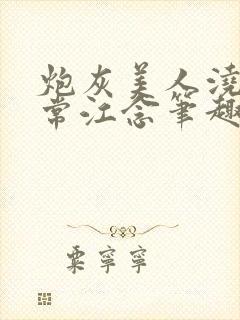 炮灰美人浇
常江念笔趣
粟寧寧